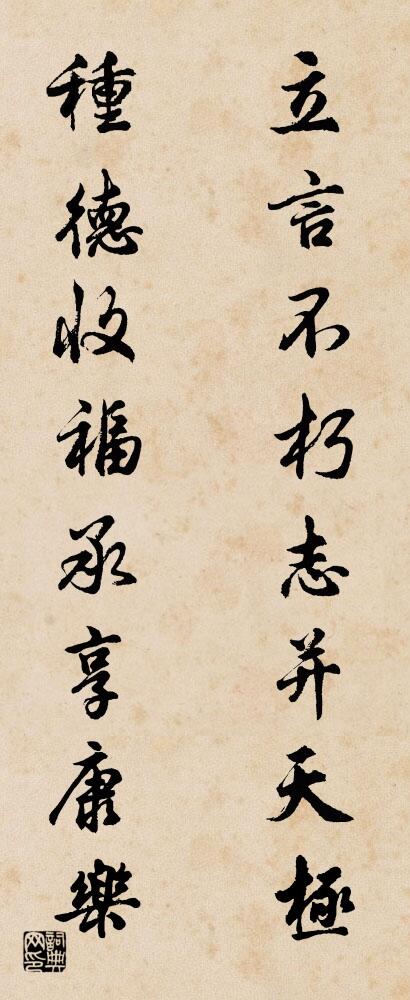 立言不朽志并天極
種德收福永享康樂